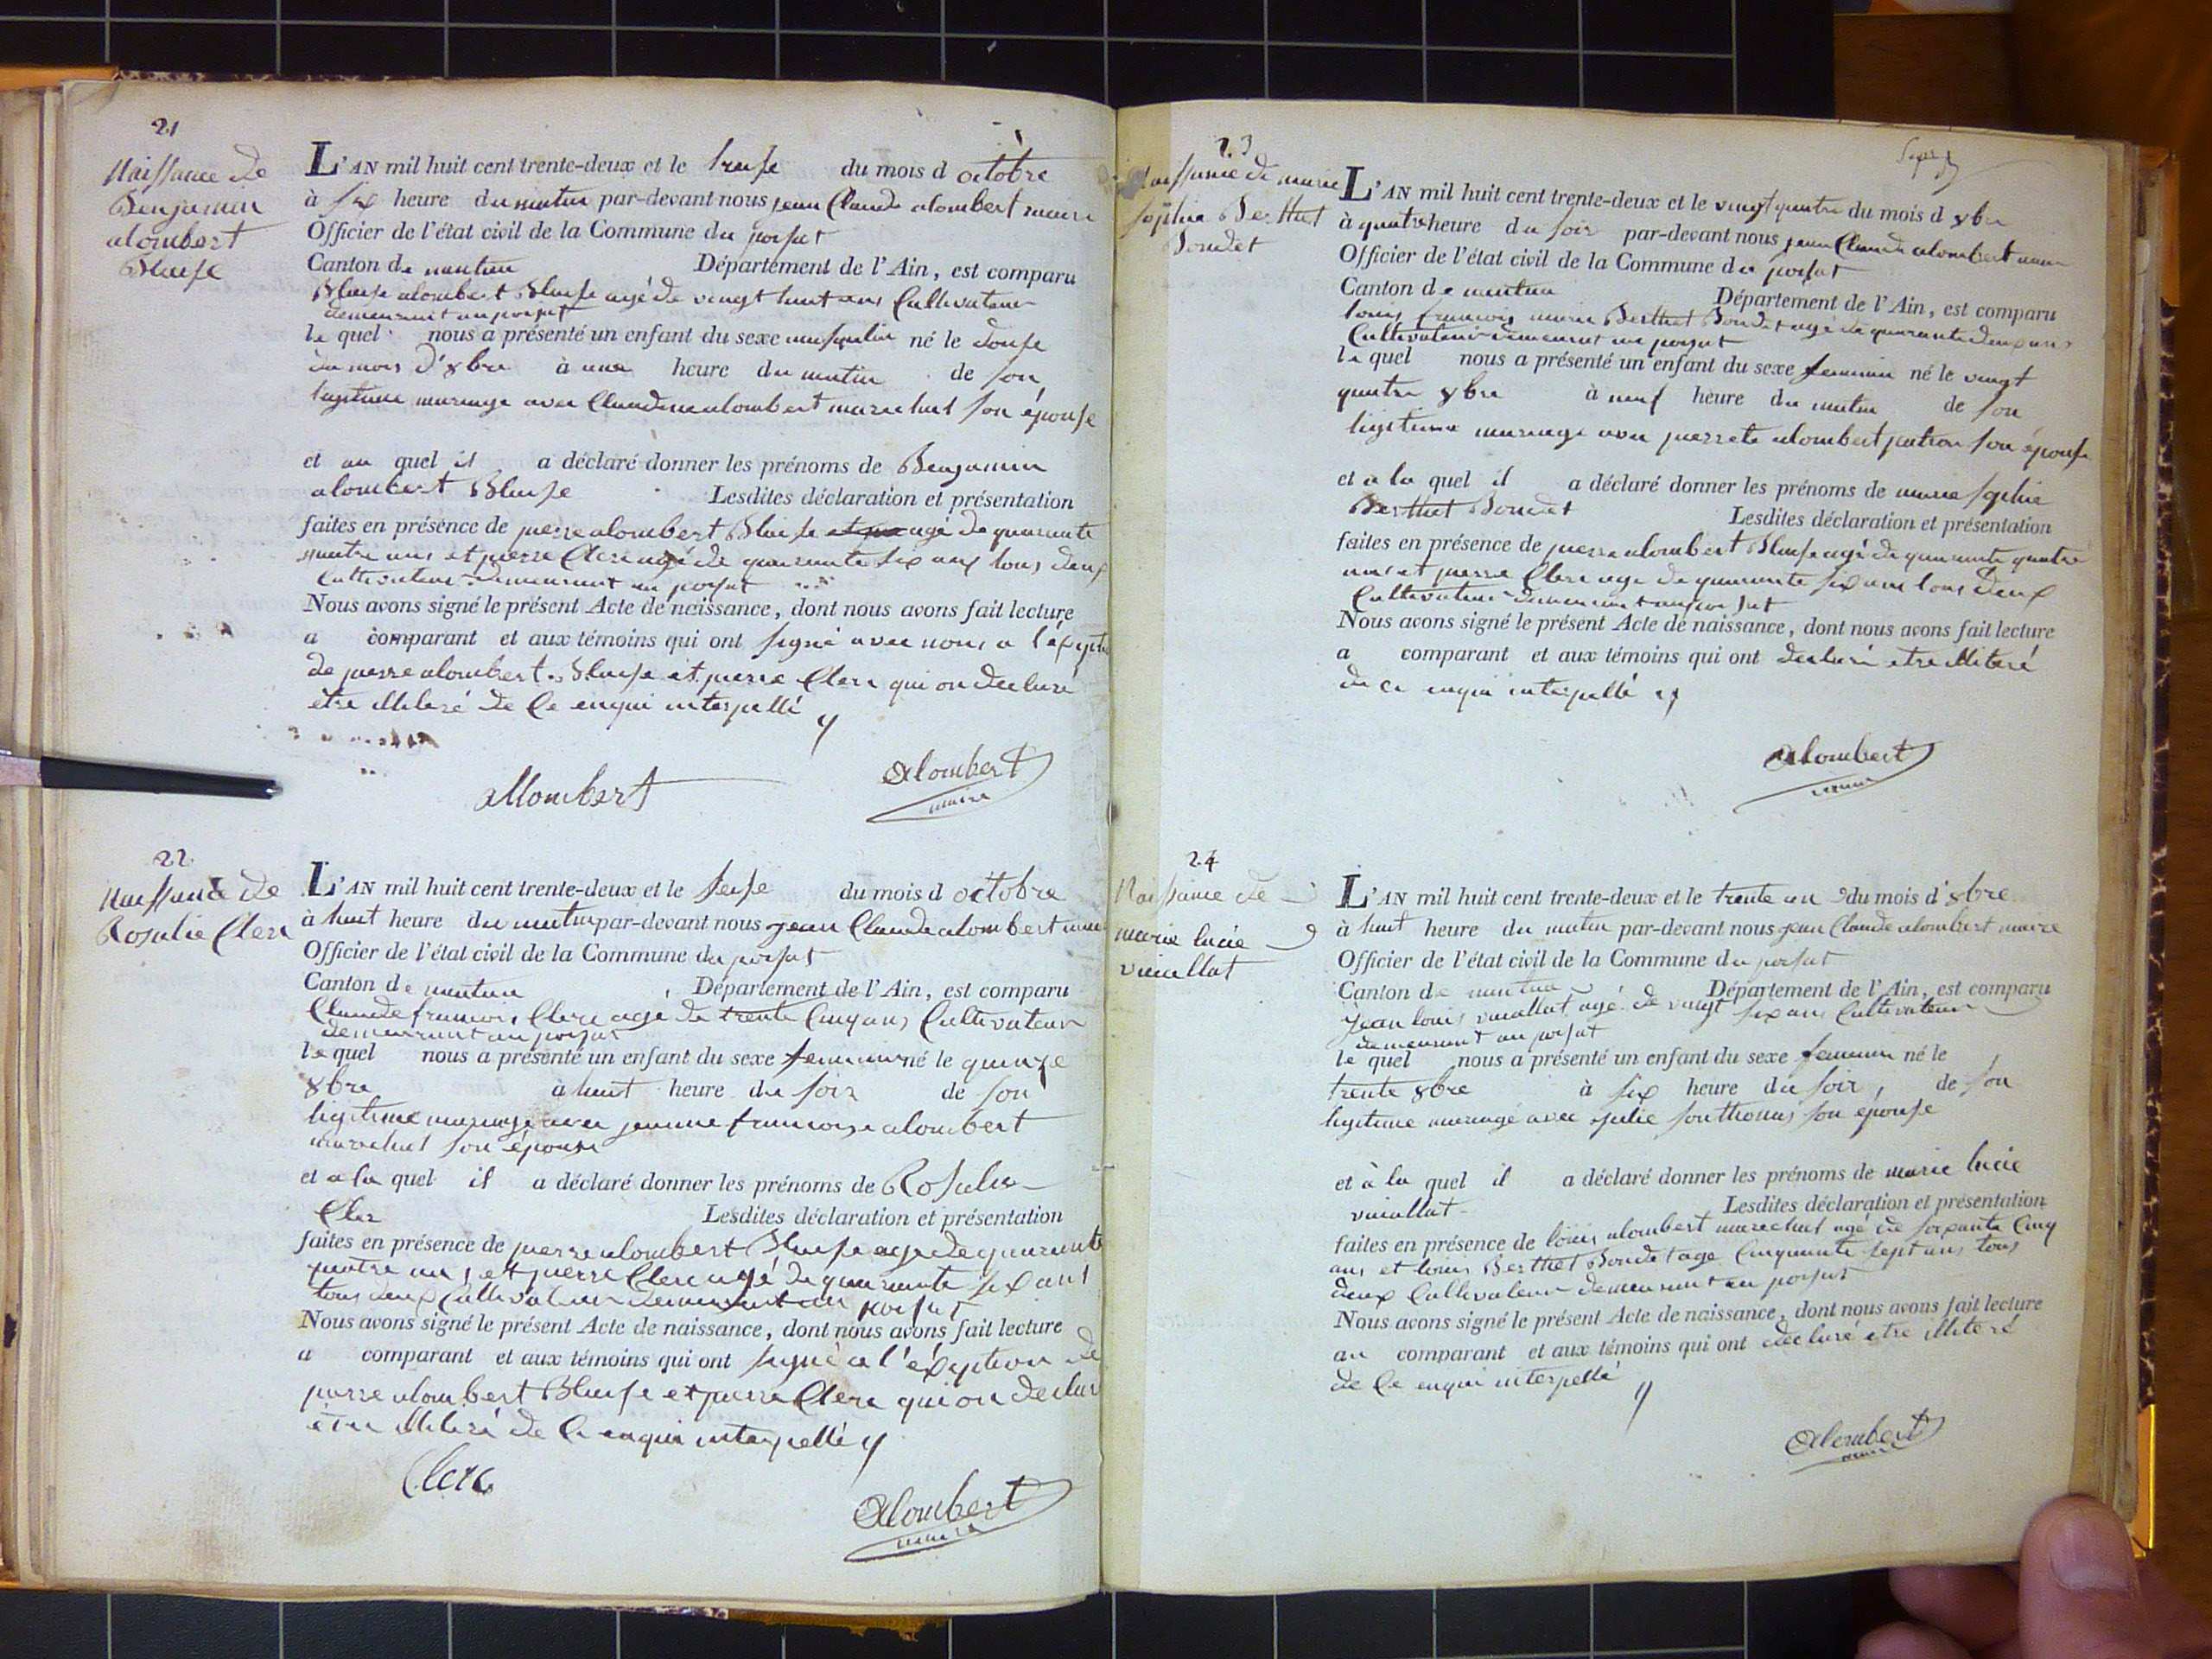 21
Naissance de
Benjamin
alombert
Bluse
L'AN mil huit cent trente-deux et le treise du mois d octobre
à six heure du matin par-devant nous jean Claude alombert maire
Officier de l'état civil de la Commune du porsat
Canton de nantua Département de l'Ain, est comparu
Bluse alombert Bluse agé de vingt huit ans Cultivateur
demeurant au porsat
le quel nous a présenté un enfant du sexe masculin né le douse
du mois d'8bre à une heure du matin de son
legitime mariage avec Claudine alombert marechal son épouse
et au quel il a déclaré donner les prénoms de Benjamin
alombert Bluse Lesdites déclaration et présentation
faites en présence de pierre alombert Bluse agé de quarante
quatre ans et pierre Clerc agé de quarante six ans tous deux
Cultivateur demeurant au porsat
Nous avons signé le présent Acte de naissance, dont nous avons fait lecture
a comparant et aux témoins qui ont signé avec nous a l'éxeption
de pierre alombert Bluse et pierre Clerc qui on declaré
etre illiteré de Ce enqui interpellé
allombert
alombert
maire
22
Naissance de
Rosalie Clerc
L'AN mil huit cent trente-deux et le seise du mois d octobre
à huit heure du matin par-devant nous jean Claude alombert maire
Officier de l'état civil de la Commune du porsat
Canton de nantua Département de l'Ain, est comparu
Claude francois Clerc agé de trente Cinq ans Cultivateur
demeurant au porsat
le quel nous a présenté un enfant du sexe feminin né le quinze
8bre à huit heure du soir de son
legitime mariage avec jeanne francoise alombert
marechal son épouse
et a la quel il a déclaré donner les prénoms de Rosalie
Clerc Lesdites déclaration et présentation
faites en présence de pierre alombert Bluse agé de quarante
quatre ans et pierre Clerc agé de quarante six ans
tous deux Cultivateur demeurant au porsat
Nous avons signé le présent Acte de naissance, dont nous avons fait lecture
a comparant et aux témoins qui ont signé a l'éxeption de
pierre alombert Bluse et pierre Clerc qui on declaré
être illiteré de Ce enqui interpellé
Clerc
alombert
maire
23
Naissance de marie
sophie Berthet
Bondet
L'AN mil huit cent trente-deux et le vingt quatre du mois d 8bre
à quatre heure du soir par-devant nous jean Claude alombert maire
Officier de l'état civil de la Commune du porsat
Canton de nantua Département de l'Ain, est comparu
louis francois marie Berthet Bondet agé de quarante deux ans
Cultivateur demeurant au porsat
le quel nous a présenté un enfant du sexe feminin né le vingt
quatre 8bre à neuf heure du matin de son
legitime mariage avec pierrete alombert patron son épouse
et a la quel il a déclaré donner les prénoms de marie sophie
Berthet Bondet Lesdites déclaration et présentation
faites en présence de pierre alombert Bluse agé de quarante quatre
ans et pierre Clerc agé de quarante six ans tous deux
Cultivateur demeurant au porsat
Nous avons signé le présent Acte de naissance, dont nous avons fait lecture
a comparant et aux témoins qui ont declaré etre illiteré
de ce enqui interpellé
alombert
maire
24
Naissance de
marie lucie
vuiallat
L'AN mil huit cent trente-deux et le trente un du mois d'8bre
à huit heure du matin par-devant nous jean Claude alombert maire
Officier de l'état civil de la Commune du porsat
Canton de nantua Département de l'Ain, est comparu
jean louis vuiallat agé de vingt six ans Cultivateur
demeurant au porsat
le quel nous a présenté un enfant du sexe feminin né le
trente 8bre à six heure du soir, de son
legitime mariage avec julie sonthonas son épouse
et à la quel il a déclaré donner les prénoms de marie lucie
vuiallat Lesdites déclaration et présentation
faites en présence de louis alombert marechal agé de soixante Cinq
ans et louis Berthet Bondet agé Cinquante sept ans tous
deux Cultivateur demeurant au porsat
Nous avons signé le présent Acte de naissance, dont nous avons fait lecture
au comparant et aux témoins qui ont declaré etre illiteré
de Ce enqui interpellé
alombert
maire